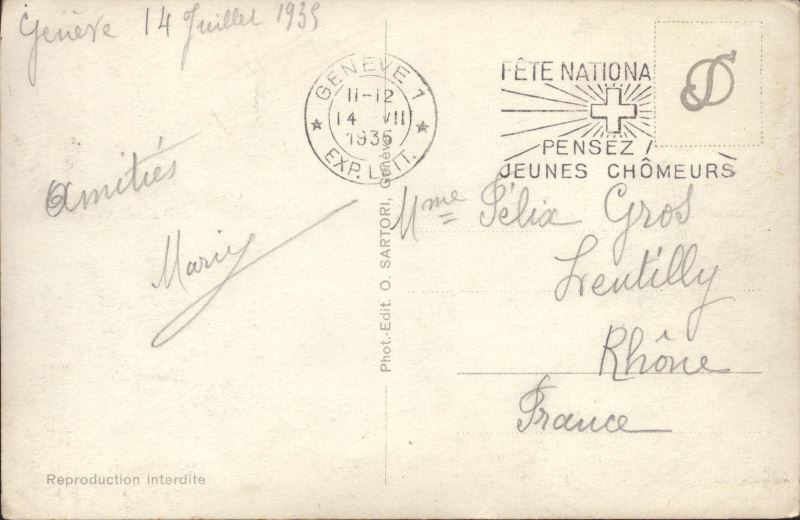 Genève 14 Juillet 1935
GENEVE 1
11-12
14 VII
1935
EXP. LETT.
FÊTE NATIONA
PENSEZ
JEUNES CHÔMEURS
Amitiés
Marie
Mme Félix Gros
Lentilly
Rhône
France
Phot.-Edit. O. SARTORI, Genève
Reproduction interdite